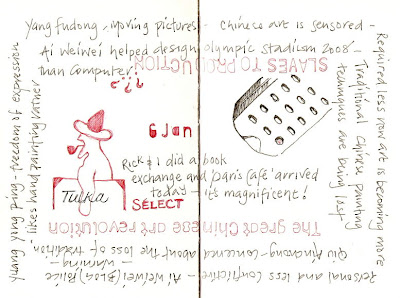 Yang fudong - moving pictures - Chinese art is sensored -
Ai Weiwei helped design olympic stadium 2008 -
than computer!
SLAVES TO PRODUCTION
6 Jan
Rick & I did a book
exchange and 'Paris Café' arrived
today - it's magnificent!
Tulka
SELECT
The great Chinese art revolution
Required less now art is becoming more
Traditional Chinese painting
techniques are being lost
Personal and less conflictive - Ai Weiwei (Blog) Police
- concerned about the loss of tradition
warning -
Yang Yang fung - freedom of expression
likes hand painting rather